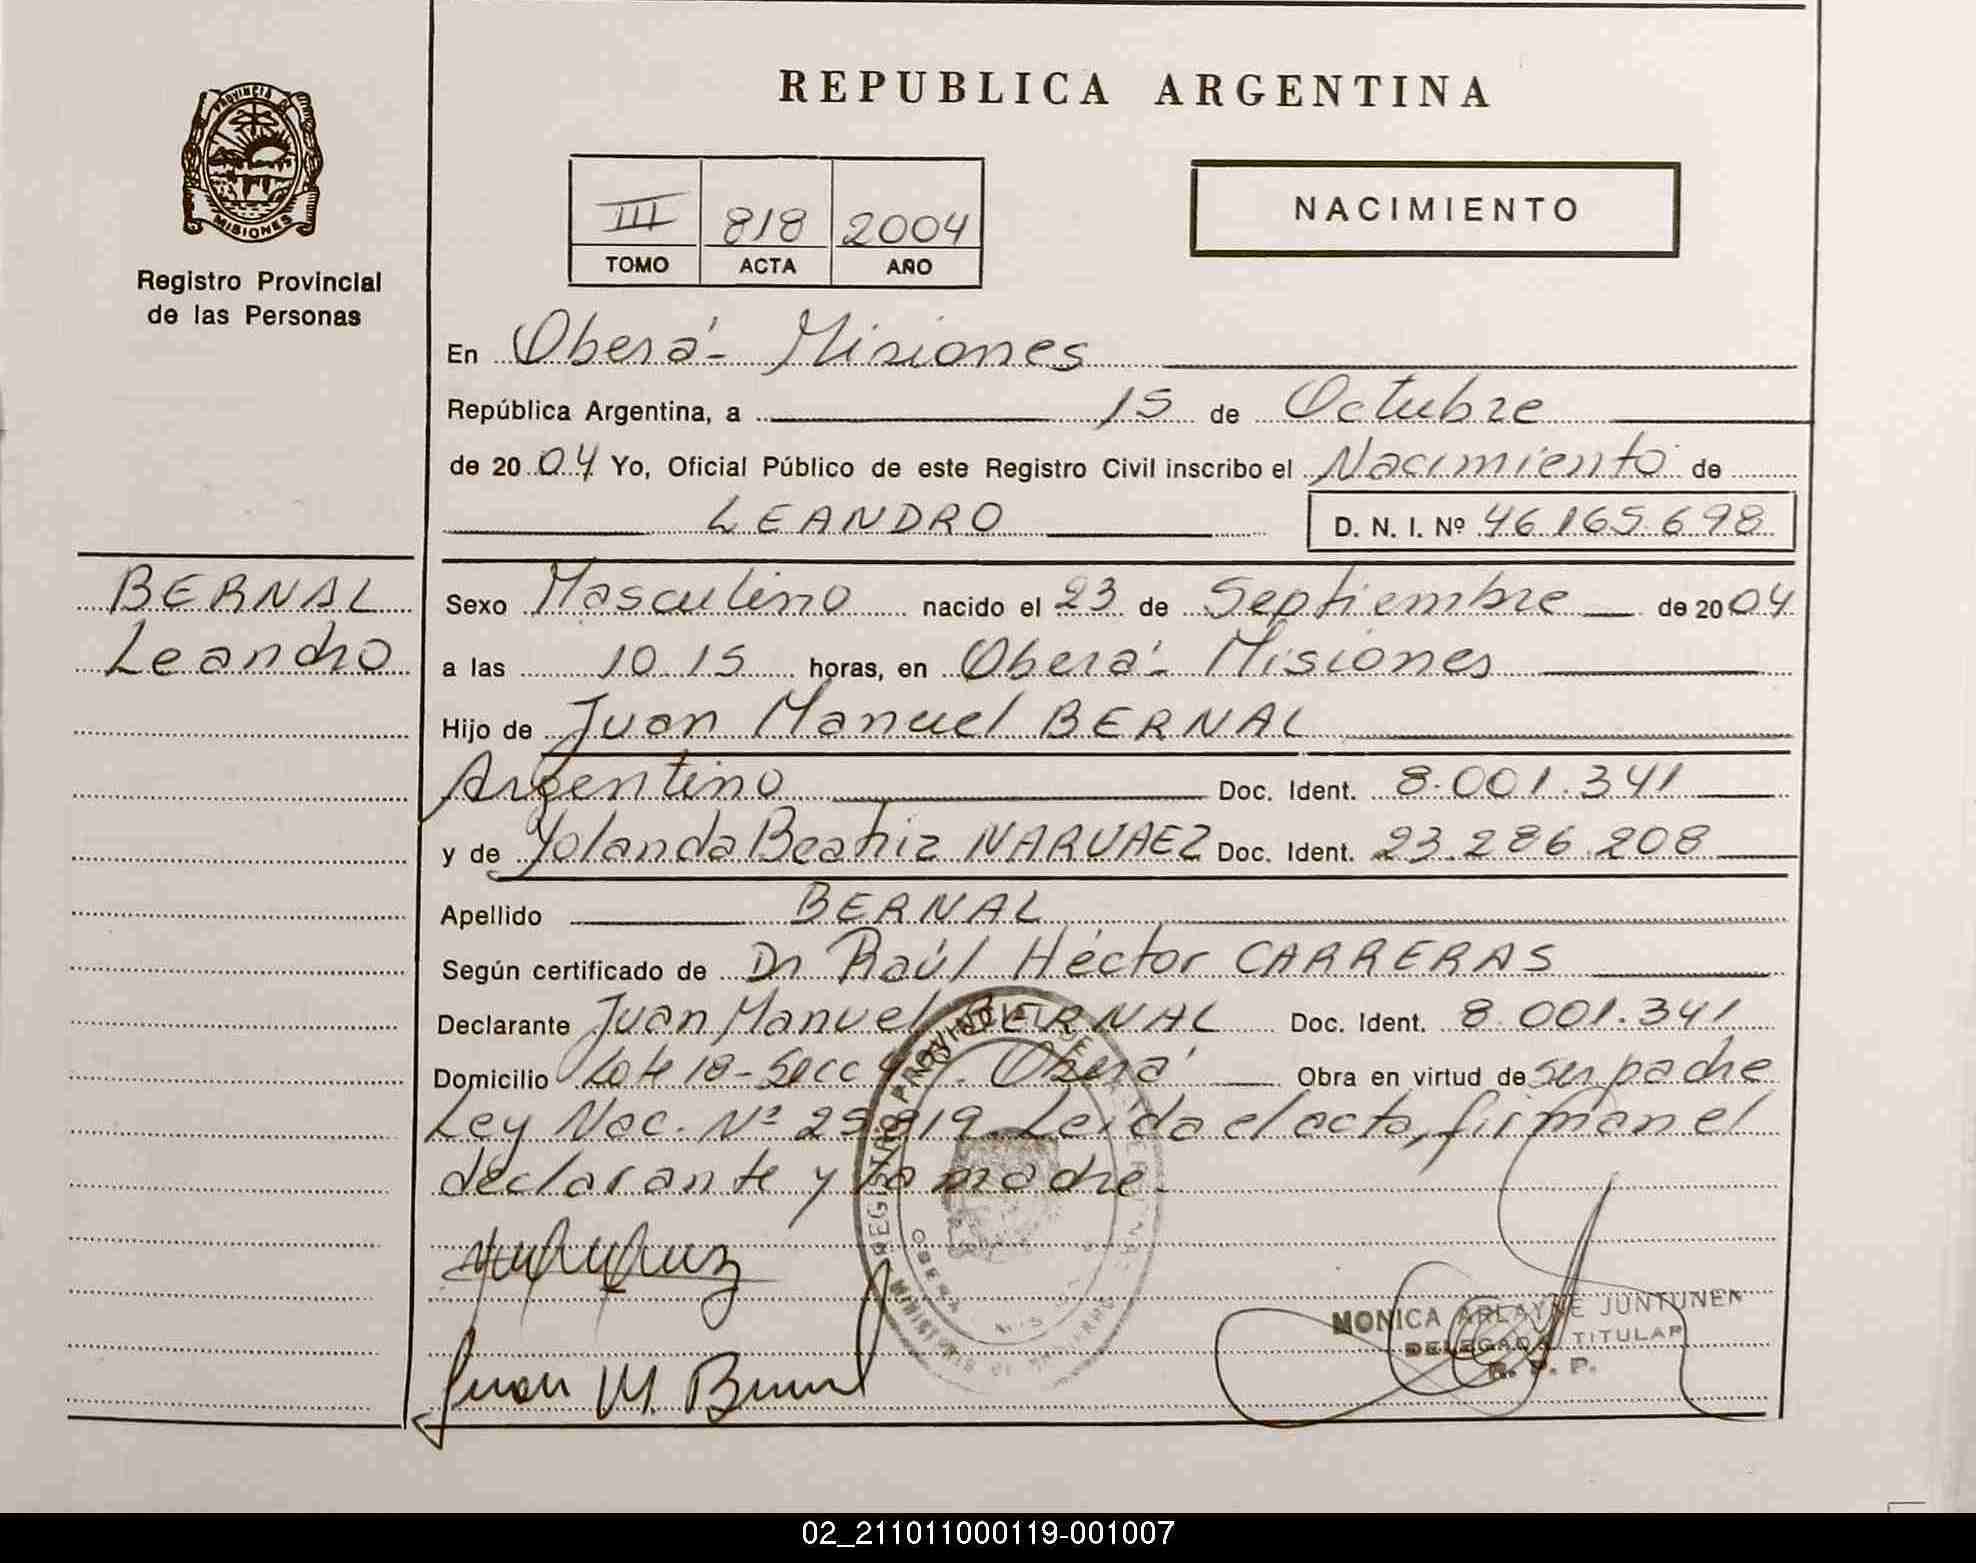 REPUBLICA ARGENTINA
PROVINCIA DE
MISIONES
Registro Provincial
de las Personas
III 818 2004
TOMO ACTA AÑO
NACIMIENTO
En Oberá - Misiones
República Argentina, a 15 de Octubre
de 2004 Yo, Oficial Público de este Registro Civil inscribo el Nacimiento de
LEANDRO D. N. I. Nº 46.165.698
BERNAL
Leandro
Sexo Masculino nacido el 23 de Septiembre de 2004
a las 10.15 horas, en Oberá - Misiones
Hijo de Juan Manuel BERNAL
Argentino Doc. Ident. 8.001.341
y de Yolanda Beatriz NARVAEZ Doc. Ident. 23.286.208
Apellido BERNAL
Según certificado de Dr Raúl Héctor CARRERAS
Declarante Juan Manuel BERNAL Doc. Ident. 8.001.341
Domicilio Lote 18 - Secc Oberá Obra en virtud de ser padre
Ley Nac. Nº 25819 Leída el acta, firman el
declarante y la madre.
Juan M. Bernal
MONICA ARLAYNE JUNTUNEN
DELEGADA TITULAR
R. P. P.
02_211011000119-001007